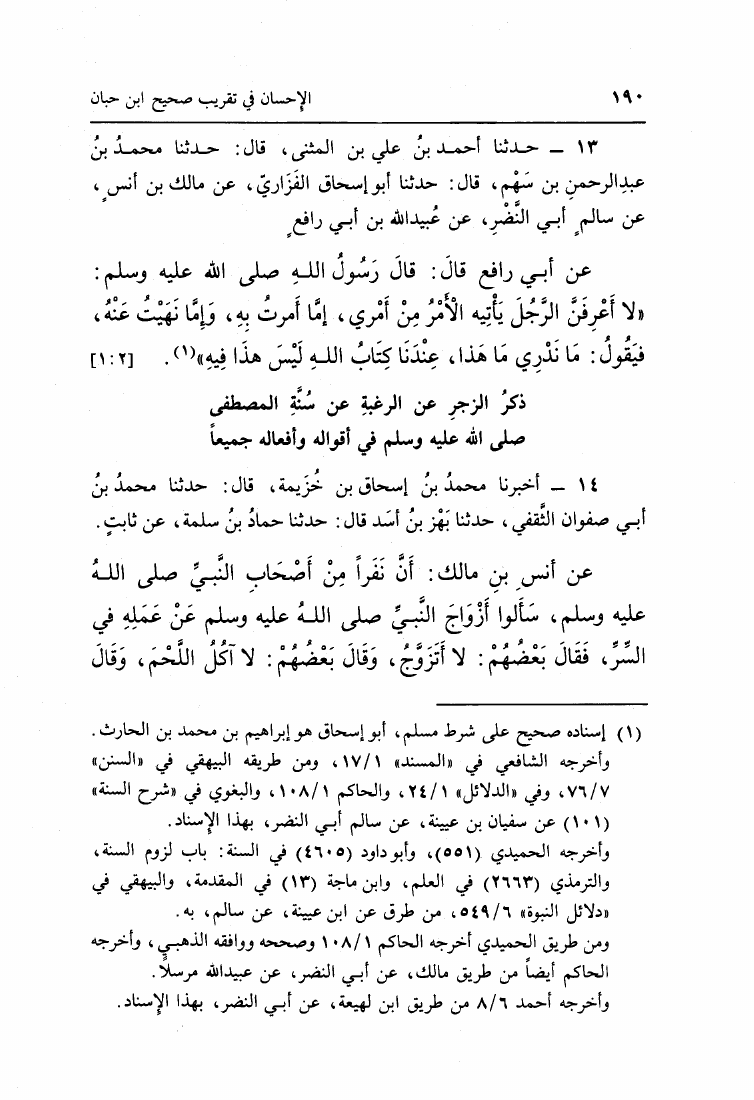 ١٩٠ الإحسان في تقريب صحيح ابن حبان
١٣ ــ حـدثنا أحمـد بنُ علي بن المثنى، قال: حـدثنا محمـدُ بنُ
عبدِالرحمنِ بن سَهْم، قال: حدثنا أبو إسحاق الفَزَاريّ، عن مالك بن أنسٍ،
عن سالمٍ أبـي النَّضْرِ، عن عُبيدالله بن أبـي رافعٍ
عن أبـي رافع قالَ: قالَ رَسُولُ اللـهِ صلى الله عليه وسلم:
«لا أَعْرِفَنَّ الرَّجُلَ يَأْتِيه الْأَمْرُ مِنْ أَمْري، إمَّا أَمرتُ بِهِ، وَإِمَّا نَهَيْتُ عَنْهُ،
فيَقُولُ: مَا نَدْرِي مَا هَذا، عِنْدَنَا كِتَابُ اللـهِ لَيْسَ هذَا فِيهِ»(١). [١:٢]
ذكرُ الزجرِ عن الرغبةِ عن سُنَّةِ المصطفى
صلى الله عليه وسلم في أقواله وأفعاله جميعاً
١٤ ــ أخبرنا محمدُ بنُ إسحاق بن خُزَيمة، قال: حدثنا محمدُ بنُ
أبـي صفوان الثَّقفي، حدثنا بَهْز بنُ أسَد قال: حدثنا حمادُ بنُ سلمة، عن ثابتٍ.
عن أنسِ بنِ مالك: أَنَّ نَفَراً مِنْ أَصْحَابِ النَّبـيِّ صلى اللـهُ
عليه وسلم، سَألوا أَزْوَاجَ النَّبـيِّ صلى اللـهُ عليه وسلم عَنْ عَمَلِهِ في
السِّرِّ، فَقَالَ بَعْضُهُمْ: لا أَتَزَوَّجُ، وَقَالَ بَعْضُهُمْ: لا آكُلُ اللَّحْمَ، وَقَالَ
(١) إسناده صحيح على شرط مسلم، أبو إسحاق هو إبراهيم بن محمد بن الحارث.
وأخرجه الشافعي في «المسند» ١٧/١، ومن طريقه البيهقي في «السنن»
٧٦/٧، وفي «الدلائل» ٢٤/١، والحاكم ١٠٨/١، والبغوي في «شرح السنة»
(١٠١) عن سفيان بن عيينة، عن سالم أبـي النضر، بهذا الإسناد.
وأخرجه الحميدي (٥٥١)، وأبو داود (٤٦٠٥) في السنة: باب لزوم السنة،
والترمذي (٢٦٦٣) في العلم، وابن ماجة (١٣) في المقدمة، والبيهقي في
«دلائل النبوة» ٥٤٩/٦، من طرق عن ابن عيينة، عن سالم، به.
ومن طريق الحميدي أخرجه الحاكم ١٠٨/١ وصححه ووافقه الذهبـي، وأخرجه
الحاكم أيضاً من طريق مالك، عن أبـي النضر، عن عبيدالله مرسلاً.
وأخرجه أحمد ٨/٦ من طريق ابن لهيعة، عن أبـي النضر، بهذا الإسناد.